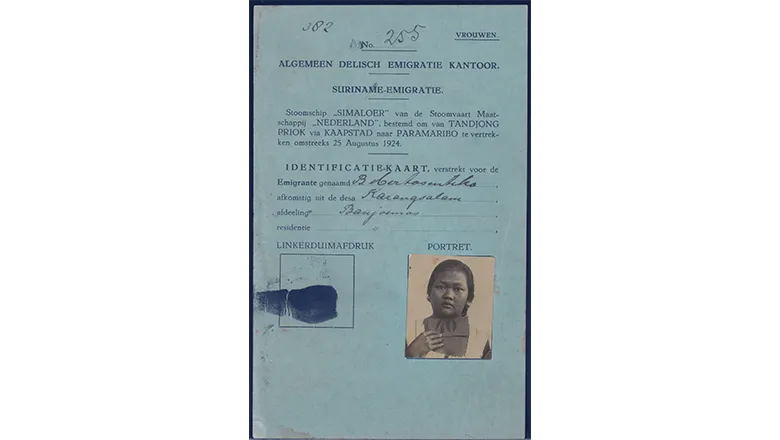 382
No. 255
VROUWEN.
ALGEMEEN DELISCH EMIGRATIE KANTOOR.
SURINAME-EMIGRATIE.
Stoomschip „SIMALOER" van de Stoomvaart Maat-
schappij „NEDERLAND", bestemd om van TANDJONG
PRIOK via KAAPSTAD naar PARAMARIBO te vertrek-
ken omstreeks 25 Augustus 1924.
IDENTIFICATIE-KAART, verstrekt voor de
Emigrante genaamd
afkomstig uit de desa Karangsalam
afdeeling Banjoemas
residentie "
LINKERDUIMAFDRUK
PORTRET.